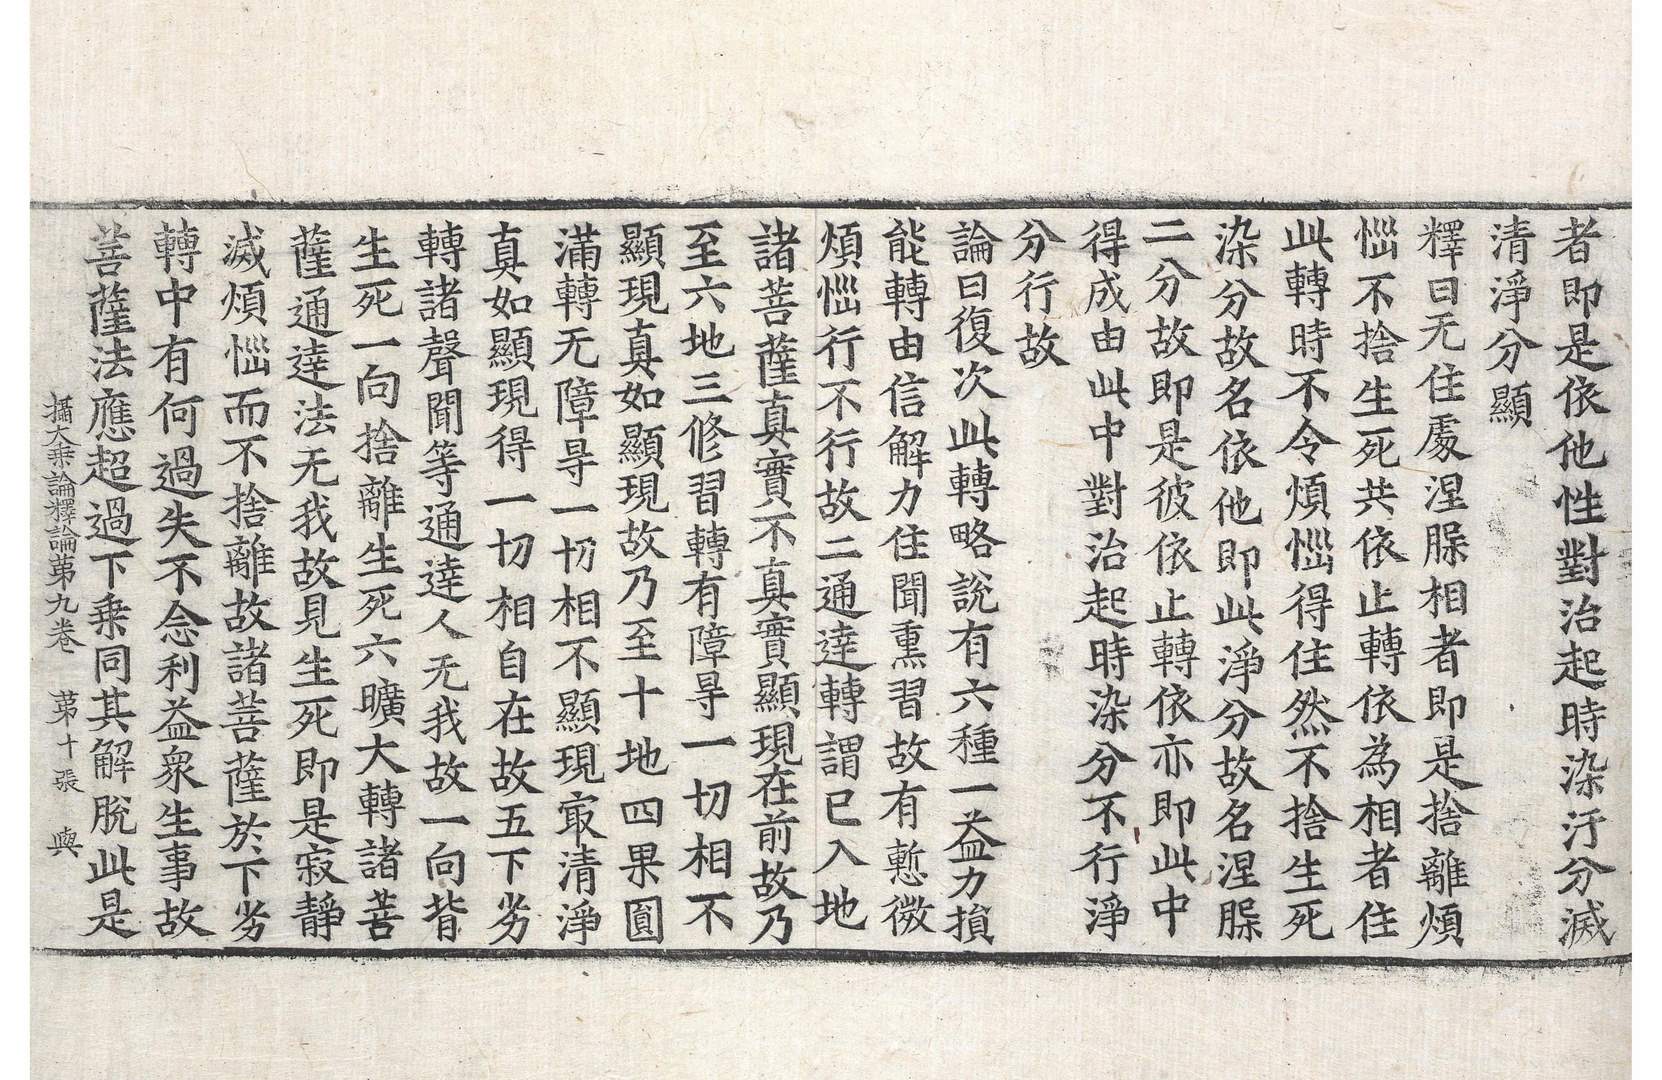 者即是依他性對治起時染汙分滅
清淨分顯
釋曰无住處涅脲相者即是捨離煩
惱不捨生死共依止轉依為相者住
此轉時不令煩惱得住然不捨生死
染分故名依他即此淨分故名涅脲
二分故即是彼依止轉依亦即此中
得成由此中對治起時染分不行淨
分行故
論曰復次此轉略說有六種一益力損
能轉由信解力住聞熏習故有慙微
煩惱行不行故二通達轉謂已入地
諸菩薩真實不真實顯現在前故乃
至六地三修習轉有障㝵一切相不
顯現真如顯現故乃至十地四果圓
滿轉无障㝵一切相不顯現㝡清淨
真如顯現得一切相自在故五下劣
轉諸聲聞等通達人无我故一向背
生死一向捨離生死六曠大轉諸菩
薩通達法无我故見生死即是寂靜
滅煩惱而不捨離故諸菩薩於下劣
轉中有何過失不念利益衆生事故
菩薩法應超過下乗同其解脫此是
攝大乗論釋論苐九卷 苐十張 輿